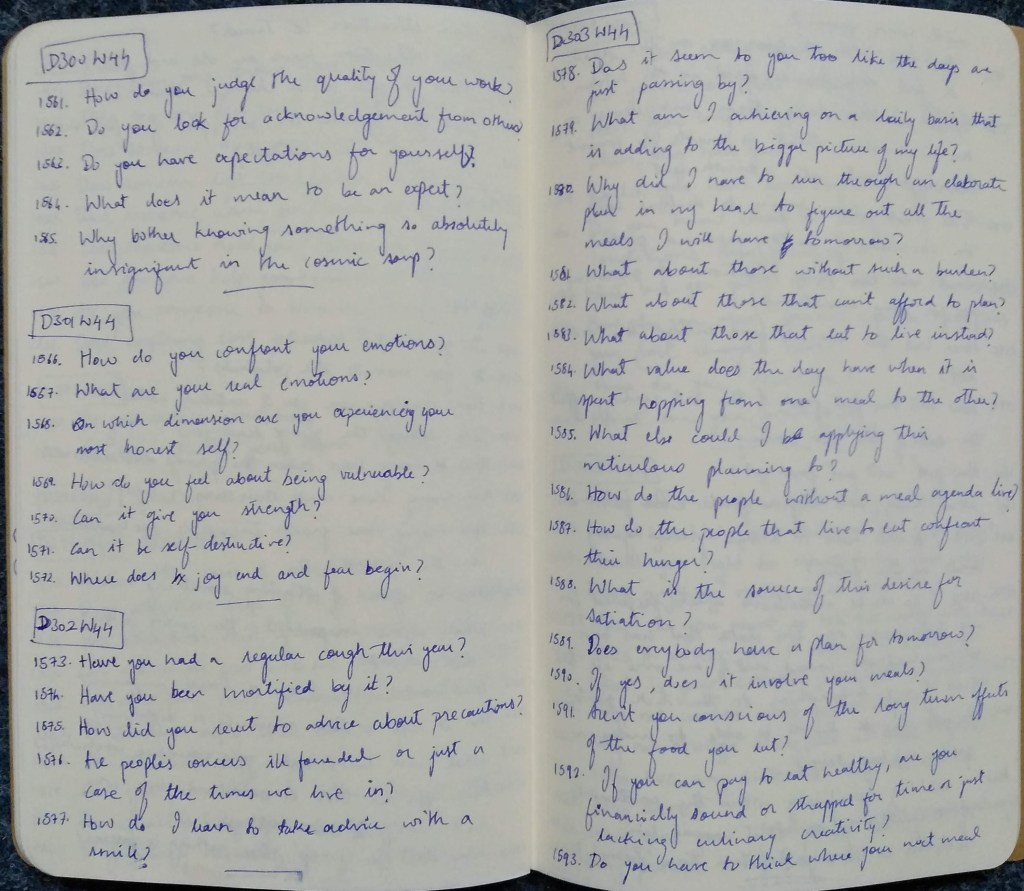 D300W44
1561. How do you judge the quality of your work?
1562. Do you look for acknowledgement from others?
1563. Do you have expectations for yourself?
1564. What does it mean to be an expert?
1565. Why bother knowing something so absolutely
insignificant in the cosmic soup?
D301W44
1566. How do you confront your emotions?
1567. What are your real emotions?
1568. On which dimension are you experiencing your
most honest self?
1569. How do you feel about being vulnerable?
1570. Can it give you strength?
1571. Can it be self-destructive?
1572. Where does joy end and fear begin?
D302W44
1573. Have you had a regular cough this year?
1574. Have you been mortified by it?
1575. How did you react to advice about precautions?
1576. Are people's concerns ill founded or just a
case of the times we live in?
1577. How do I learn to take advice with a
smile?
D303W44
1578. Does it seem to you too like the days are
just passing by?
1579. What am I achieving on a daily basis that
is adding to the bigger picture of my life?
1580. Why did I have to run through an elaborate
plan in my head to figure out all the
meals I will have tomorrow?
1581. What about those without such a burden?
1582. What about those that can't afford to plan?
1583. What about those that eat to live instead?
1584. What value does the day have when it is
spent hopping from one meal to the other?
1585. What else could I be applying this
meticulous planning to?
1586. How do the people without a meal agenda live?
1587. How do the people that live to eat confront
their hunger?
1588. What is the source of this desire for
satiation?
1589. Does everybody have a plan for tomorrow?
1590. If yes, does it involve your meals?
1591. Aren't you conscious of the long term effects
of the food you eat?
1592. If you can pay to eat healthy, are you
financially sound or strapped for time or just
lacking culinary creativity?
1593. Do you have to think where your next meal